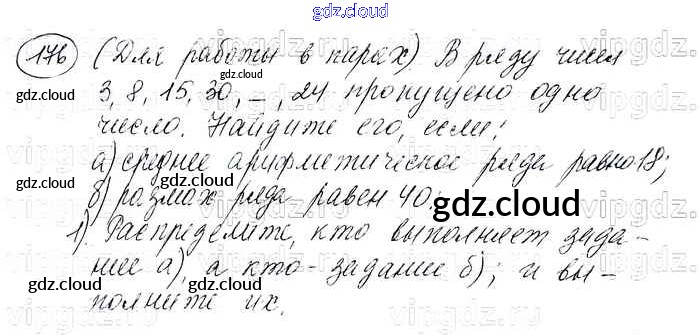 gdz.cloud
176 (Для работы в парах). В ряду чисел
3, 8, 15, 30, _, 24 пропущено одно
число. Найдите его, если:
а) среднее арифметическое ряда равно 18;
б) размах ряда равен 40;
1). Распределите, кто выполняет зада-
ние а), а кто - задание б); и вы-
полните их.
gdz.cloud
gdz.cloud
gdz.cloud
gdz.cloud
gdz.cloud
gdz.cloud